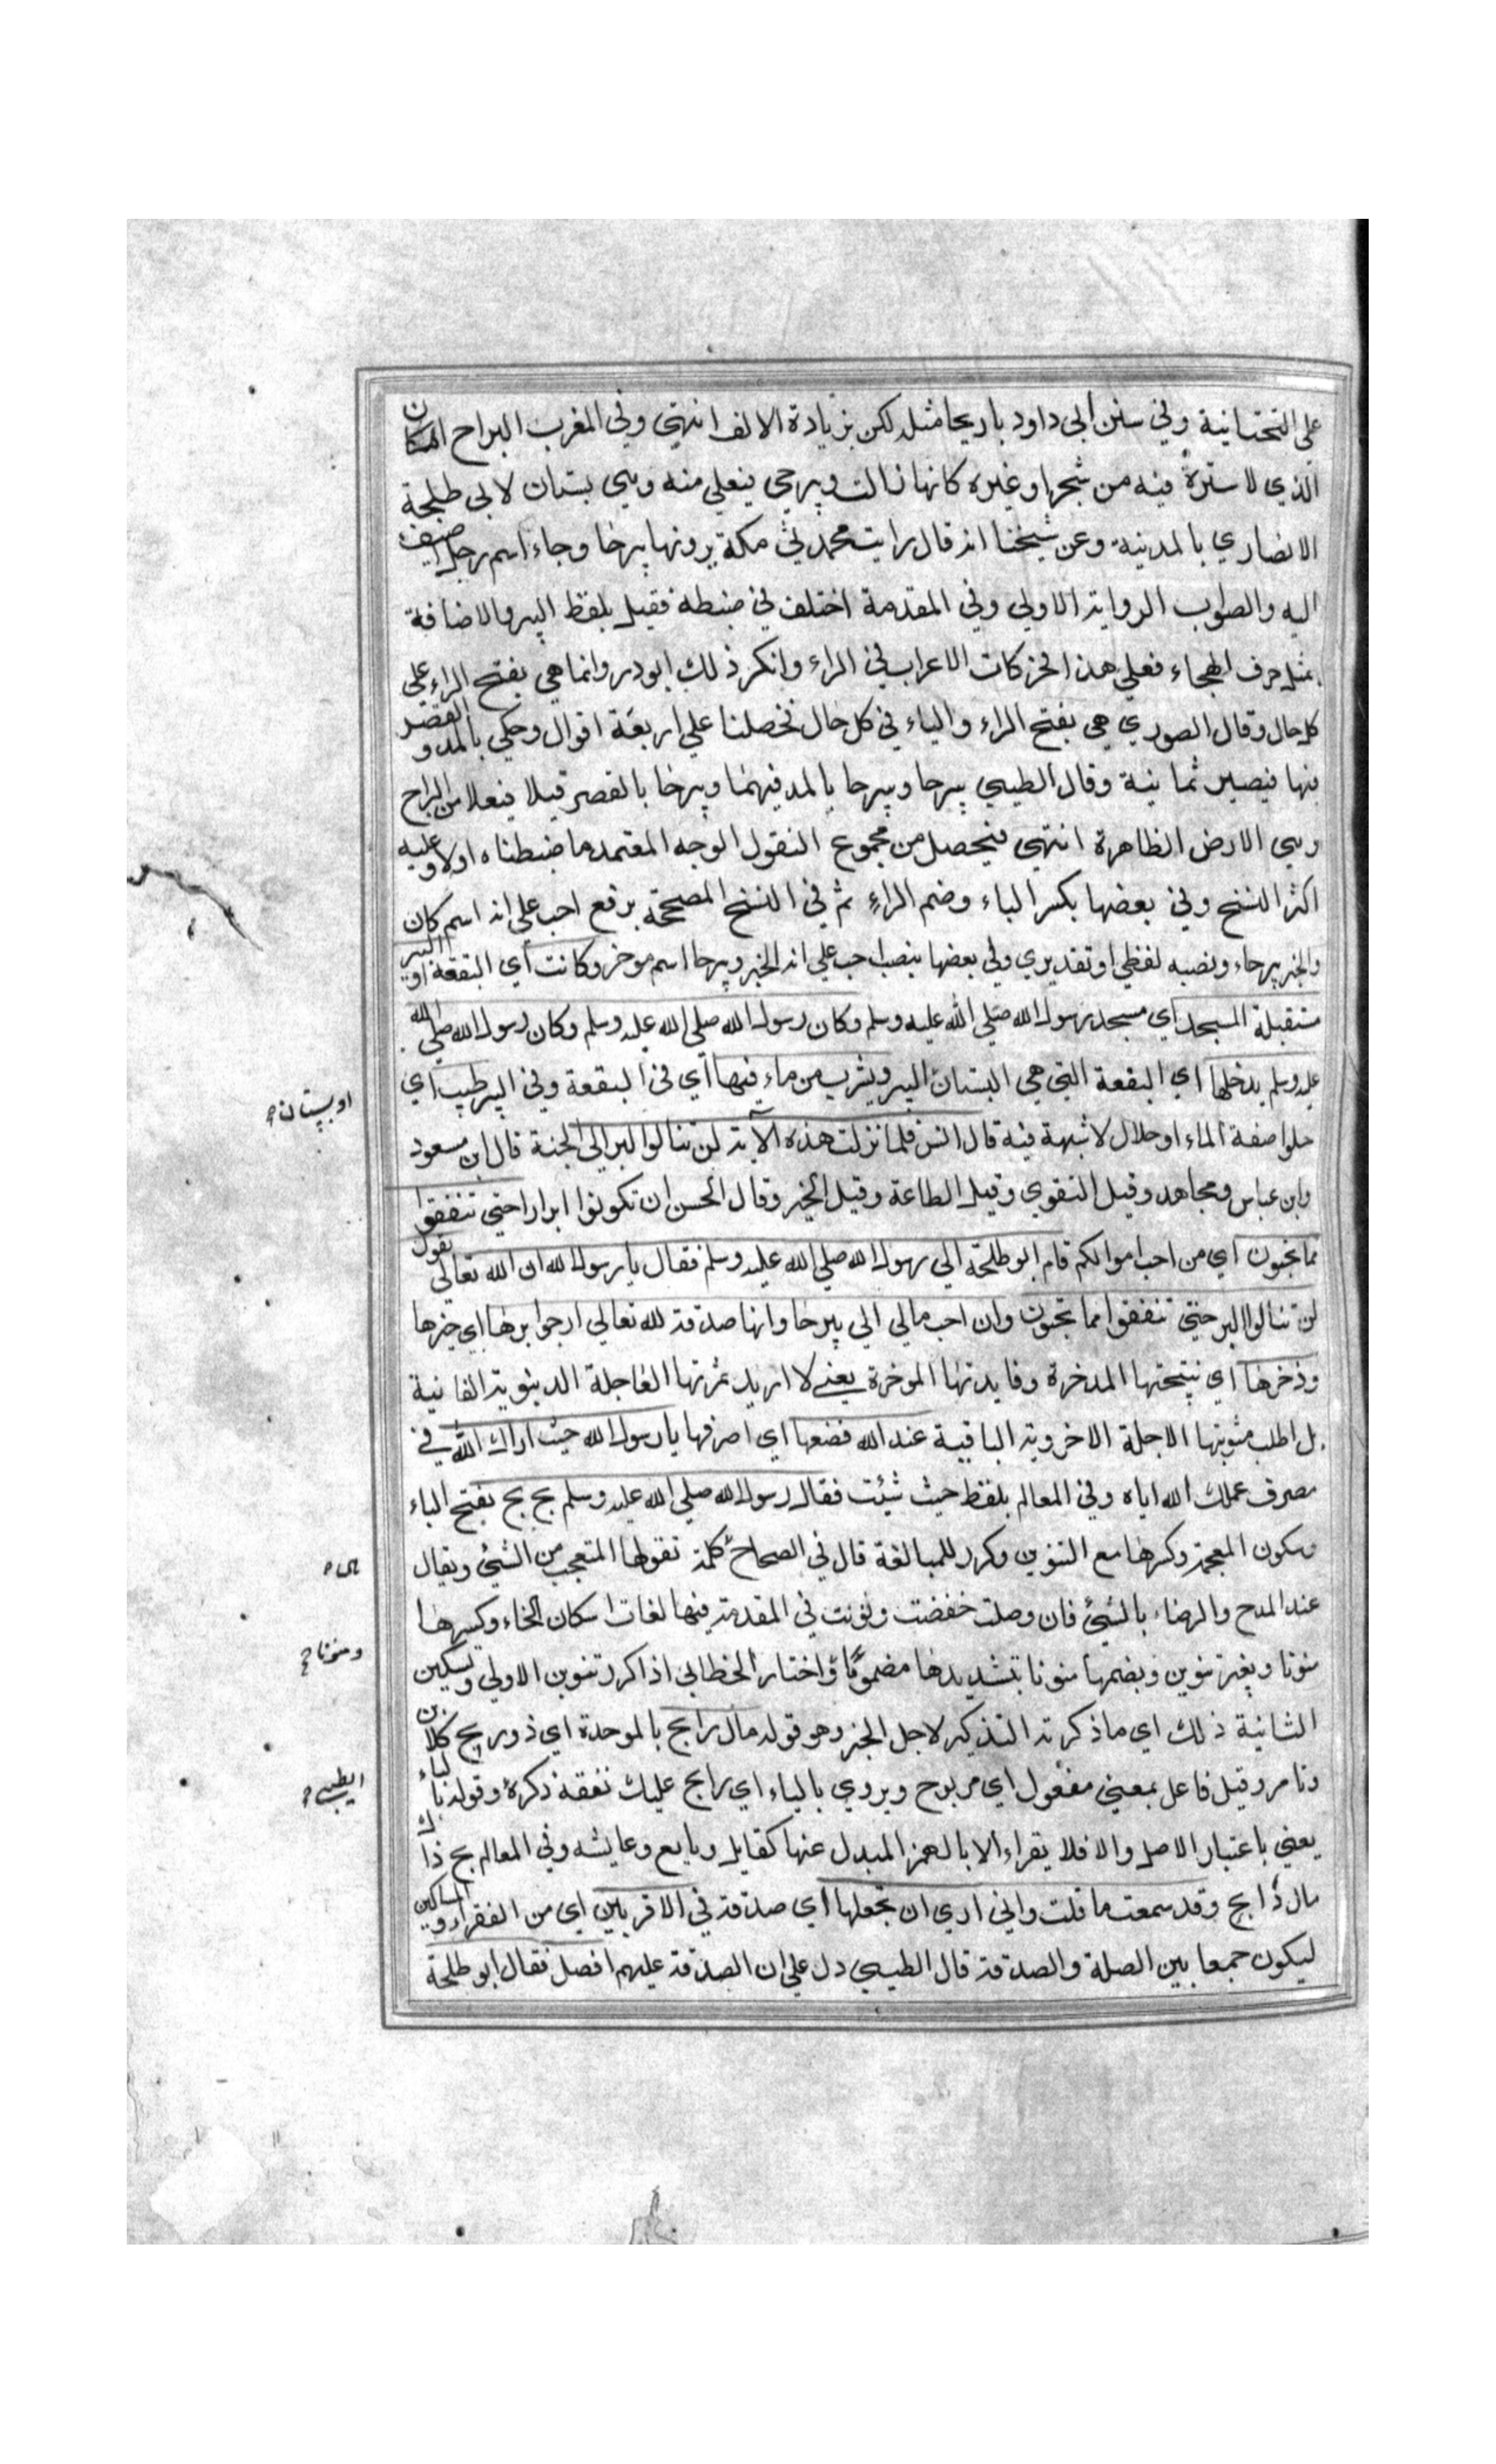 على التحتانية وفي سنن ابي داود باريحا مثله لكن بزيادة الالف انتهى وفي المغرب البراح المكان
الذي لا سترة فيه من شجر او غيره كانها زالت وبيرحى فيعلى منه وهي بستان لابي طلحة
الانصاري بالمدينة وعن شيخنا انه قال رايت محدثي مكة يرونها بيرحا وحاء اسم رجل اضيف
اليه والصواب الرواية الاولى وفي المقدمة اختلف في ضبطه فقيل بلفظ البير والاضافة
مثل حرف الهجاء فعلى هذا فحركات الاعراب في الراء وانكر ذلك ابو ذر وانما هي بفتح الراء على
كل حال وقال الصوري هي بفتح الراء والباء في كل حال فحصلنا على اربعة اقوال وحكي بالمد والقصر
فيها فيصير ثمانية وقال الطيبي بيرحا وبيرحا بالمد فيهما وبيرحا بالقصر قيل فيعلا من البراح
وهي الارض الظاهرة انتهى فيحصل من مجموع النقول الوجه المعتمد ما ضبطناه اولا وعليه
اكثر النسخ وفي بعضها بكسر الباء وضم الراء ثم في النسخ المصححة برفع احب على انه اسم كان
والخبر بيرحاء ونصبه لفظي او تقديري وفي بعضها بنصب احب على انه الخبر وبيرحا اسم موخر وكانت اي البقعة او البير
مستقبلة المسجد اي مسجد رسول الله صلى الله عليه وسلم وكان رسول الله صلى الله عليه وسلم وكان رسول الله صلى الله
عليه وسلم يدخلها اي البقعة التي هي البستان البير ويشرب من ماء فيها اي في البقعة وفي البير طيب اي
او بستان
حلو صفة الماء او حلال لا شبهة فيه قال انس فلما نزلت هذه الآية لن تنالوا البر الى الجنة قال ابن مسعود
وابن عباس ومجاهد وقيل التقوى وقيل الطاعة وقيل الخير وقال الحسن ان تكونوا ابرارا حتى تنفقوا
مما تحبون اي من احب اموالكم قام ابو طلحة الى رسول الله صلى الله عليه وسلم فقال يا رسول الله ان الله تعالى يقول
لن تنالوا البر حتى تنفقوا مما تحبون وان احب مالي الي بيرحا وانها صدقة لله تعالى ارجوا برها اي خيرها
وذخرها اي نتيجتها المدخرة وفايدتها الموخرة يعني لا اريد ثمرتها العاجلة الدنيوية الفانية
بل اطلب مثوبتها الاجلة الاخروية الباقية عند الله فضعها اي اصرفها يا رسول الله حيث اراك الله في
مصرف عملك الله اياه وفي المعالم بلفظ حيث شئت فقال رسول الله صلى الله عليه وسلم بخ بخ بفتح الباء
وسكون المعجمة وكسرها مع التنوين وكرر للمبالغة قال في الصحاح كلمة تقولها المتعجب من الشئ ويقال
عند المدح والرضاء بالشئ فان وصلت خفضت ونونت في المقدمة فيها لغات اسكان الخاء وكسرها
منونا وبغير تنوين وبضمها منونا بتشديدها مضموما واختار الخطابي اذا كرر تنوين الاولى وتسكين
ومنونا
الثانية ذلك اي ما ذكرته التذكير لاجل الخبر وهو قوله مال رابح بالموحدة اي ذو ربح كلابن
وتامر وقيل فاعل بمعنى مفعول اي مربوح ويروى بالياء اي رايح عليك نفعه ذكره وقوله بالياء
الطيبي
يعني باعتبار الاصل والا فلا يقراء الا بالهمز المبدل عنها كقايل وبايع وعايشه وفي المعالم بخ ذلك
مال رابح وقد سمعت ما قلت واني ارى ان تجعلها اي صدقة في الاقربين اي من الفقراء والمساكين
ليكون جمعا بين الصلة والصدقة قال الطيبي دل على ان الصدقة عليهم افضل فقال ابو طلحة